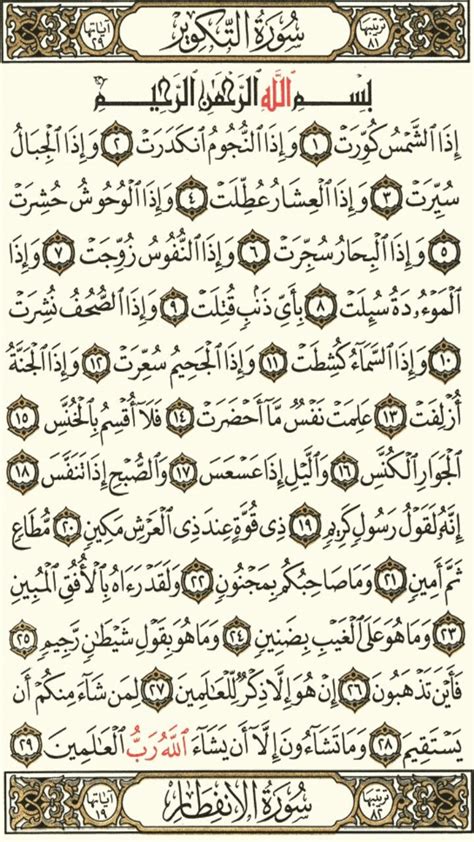 ترتيبها ٨١ سُورَةُ التَّكْوِير آياتها ٢٩
بِسْمِ ٱللَّهِ ٱلرَّحْمَٰنِ ٱلرَّحِيمِ
إِذَا ٱلشَّمْسُ كُوِّرَتْ ١ وَإِذَا ٱلنُّجُومُ ٱنكَدَرَتْ ٢ وَإِذَا ٱلْجِبَالُ
سُيِّرَتْ ٣ وَإِذَا ٱلْعِشَارُ عُطِّلَتْ ٤ وَإِذَا ٱلْوُحُوشُ حُشِرَتْ
٥ وَإِذَا ٱلْبِحَارُ سُجِّرَتْ ٦ وَإِذَا ٱلنُّفُوسُ زُوِّجَتْ ٧ وَإِذَا
ٱلْمَوْءُۥدَةُ سُئِلَتْ ٨ بِأَىِّ ذَنۢبٍ قُتِلَتْ ٩ وَإِذَا ٱلصُّحُفُ نُشِرَتْ
١٠ وَإِذَا ٱلسَّمَآءُ كُشِطَتْ ١١ وَإِذَا ٱلْجَحِيمُ سُعِّرَتْ ١٢ وَإِذَا ٱلْجَنَّةُ
أُزْلِفَتْ ١٣ عَلِمَتْ نَفْسٌ مَّآ أَحْضَرَتْ ١٤ فَلَآ أُقْسِمُ بِٱلْخُنَّسِ ١٥
ٱلْجَوَارِ ٱلْكُنَّسِ ١٦ وَٱلَّيْلِ إِذَا عَسْعَسَ ١٧ وَٱلصُّبْحِ إِذَا تَنَفَّسَ ١٨
إِنَّهُۥ لَقَوْلُ رَسُولٍ كَرِيمٍ ١٩ ذِى قُوَّةٍ عِندَ ذِى ٱلْعَرْشِ مَكِينٍ ٢٠ مُّطَاعٍ
ثَمَّ أَمِينٍ ٢١ وَمَا صَاحِبُكُم بِمَجْنُونٍ ٢٢ وَلَقَدْ رَءَاهُ بِٱلْأُفُقِ ٱلْمُبِينِ
٢٣ وَمَا هُوَ عَلَى ٱلْغَيْبِ بِضَنِينٍ ٢٤ وَمَا هُوَ بِقَوْلِ شَيْطَٰنٍ رَّجِيمٍ ٢٥
فَأَيْنَ تَذْهَبُونَ ٢٦ إِنْ هُوَ إِلَّا ذِكْرٌ لِّلْعَٰلَمِينَ ٢٧ لِمَن شَآءَ مِنكُمْ أَن
يَسْتَقِيمَ ٢٨ وَمَا تَشَآءُونَ إِلَّآ أَن يَشَآءَ ٱللَّهُ رَبُّ ٱلْعَٰلَمِينَ ٢٩
ترتيبها ٨٢ سُورَةُ الِانفِطَارِ آياتها ١٩